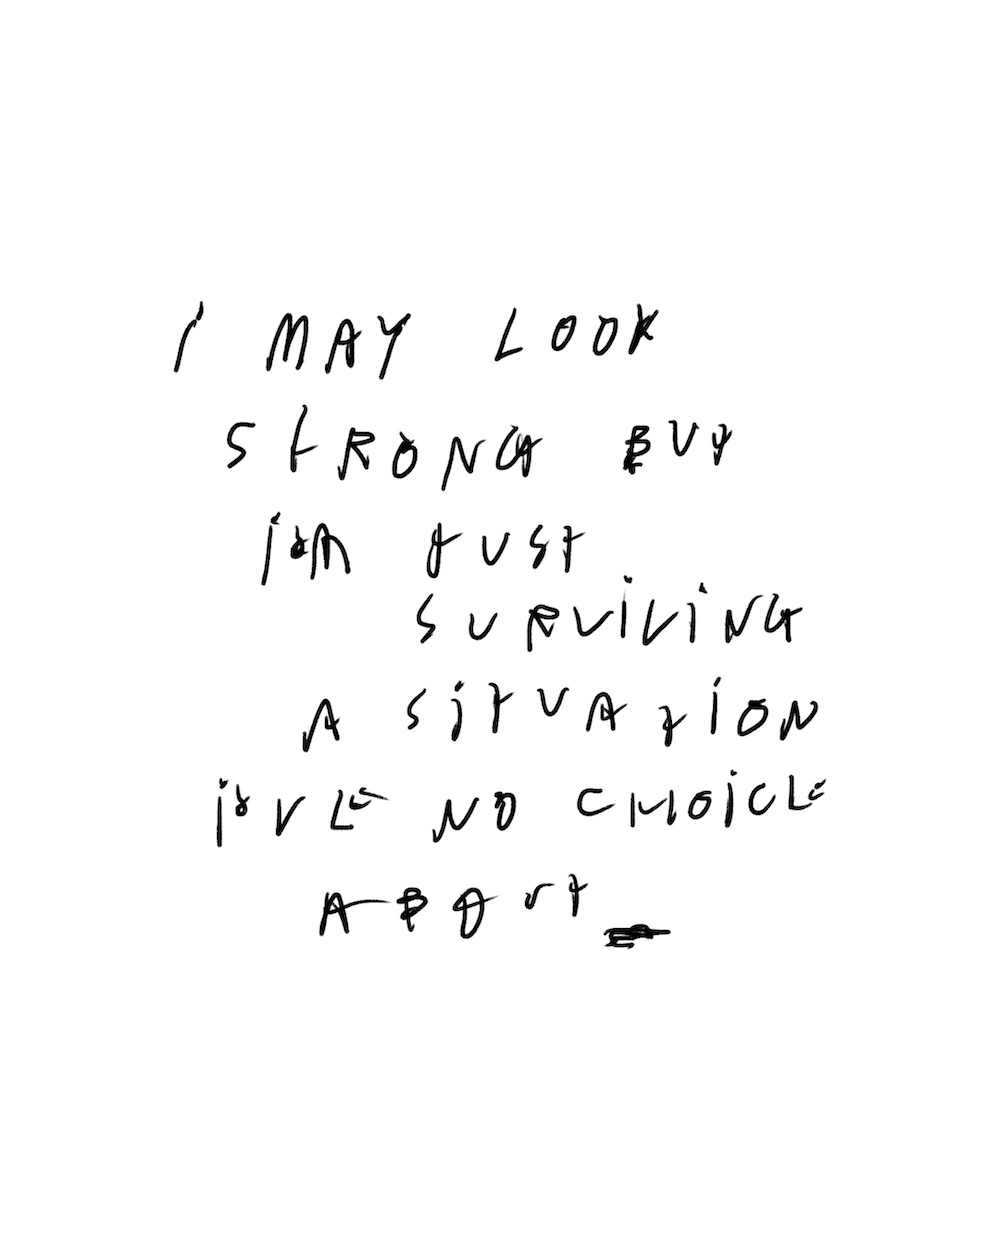 i MAY LOOK
STRONG BUT
i'M JUST
SURViViNG
A SiTUATiON
i'VE NO CHOiCE
ABOUT